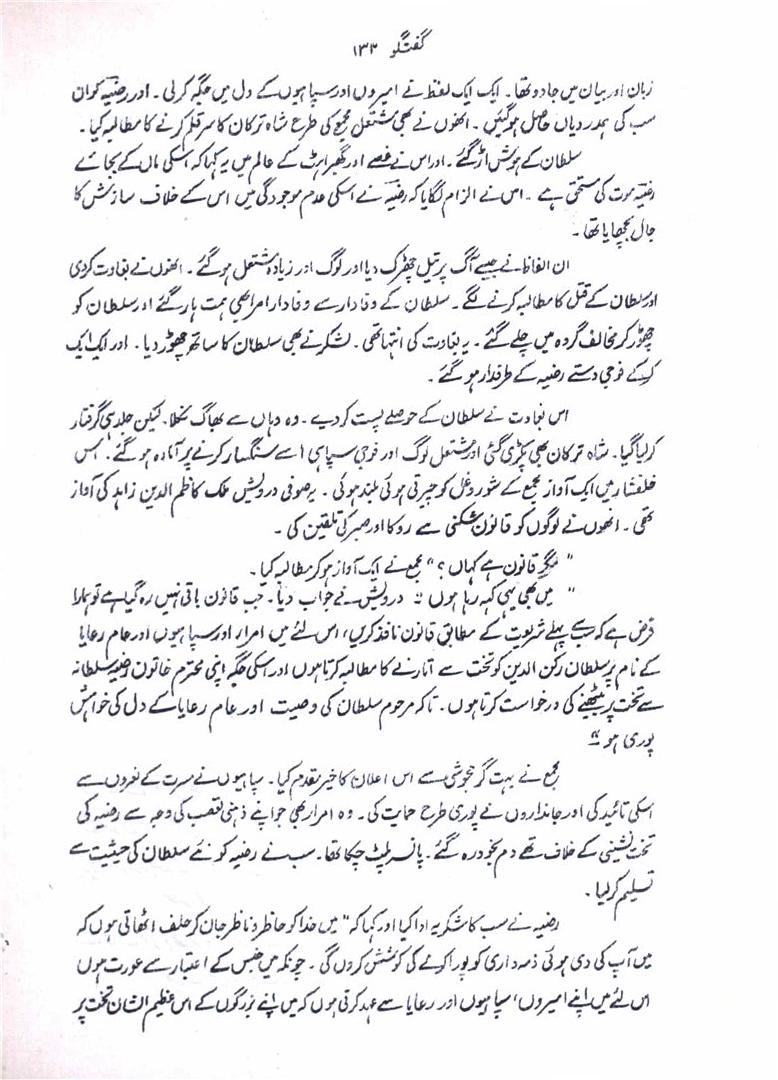 گفتگو ۱۳۳
زبان اور بیان میں جادو تھا۔ ایک ایک لفظ نے امیروں اور سپاہیوں کے دل میں جگہ کرلی۔ اور رضیہ کو ان
سب کی ہمدردیاں حاصل ہوگئیں۔ انھوں نے بھی مشتعل مجمع کی طرح شاہ ترکان کا سر قلم کرنے کا مطالبہ کیا۔
سلطان کے ہوش اڑ گئے۔ اور اس نے غصے اور گھبراہٹ کے عالم میں یہ کہا کہ اسکی ماں کے بجائے
رضیہ موت کی مستحق ہے۔ اس نے الزام لگایا کہ رضیہ نے اسکی عدم موجودگی میں اس کے خلاف سازش کا
جال بچھایا تھا۔
ان الفاظ نے جیسے آگ پر تیل چھڑک دیا اور لوگ اور زیادہ مشتعل ہوگئے۔ انھوں نے بغاوت کردی
اور سلطان کے قتل کا مطالبہ کرنے لگے۔ سلطان کے وفادار سے وفادار امرا بھی ہمت ہار گئے اور سلطان کو
چھوڑ کر مخالف گروہ میں چلے گئے۔ یہ بغاوت کی انتہا تھی۔ لشکر نے بھی سلطان کا ساتھ چھوڑ دیا۔ اور ایک ایک
کرکے فوجی دستے رضیہ کے طرفدار ہوگئے۔
اس بغاوت نے سلطان کے حوصلے پست کردیے۔ وہ وہاں سے بھاگ نکلا۔ لیکن جلد ہی گرفتار
کرلیا گیا۔ شاہ ترکان بھی پکڑی گئی اور مشتعل لوگ اور فوجی سپاہی اسے سنگسار کرنے پر آمادہ ہوگئے۔ اس
خلفشار میں ایک آواز مجمع کے شور و غل کو چیرتی ہوئی بلند ہوئی۔ یہ صوفی درویش ملک کاظم الدین زاہد کی آواز
تھی۔ انھوں نے لوگوں کو قانون شکنی سے روکا اور صبر کی تلقین کی۔
"مگر قانون ہے کہاں؟" مجمع نے ایک آواز ہوکر مطالبہ کیا۔
"میں بھی یہی کہہ رہا ہوں" درویش نے جواب دیا۔ جب قانون باقی نہیں رہ گیا ہے تو ہمارا
فرض ہے کہ سب سے پہلے شریعت کے مطابق قانون نافذ کریں، اس لئے میں امراء اور سپاہیوں اور عام رعایا
کے نام پر سلطان رکن الدین کو تخت سے اتارنے کا مطالبہ کرتا ہوں اور اسکی جگہ اپنی محترم خاتون رضیہ سلطانہ
سے تخت پر بیٹھنے کی درخواست کرتا ہوں۔ تاکہ مرحوم سلطان کی وصیت اور عام رعایا کے دل کی خواہش
پوری ہو"
مجمع نے بہت گرمجوشی سے اس اعلان کا خیر مقدم کیا۔ سپاہیوں نے مسرت کے نعروں سے
اسکی تائید کی اور جانداروں نے پوری طرح حمایت کی۔ وہ امراء بھی جو اپنے ذہنی تعصب کی وجہ سے رضیہ کی
تخت نشینی کے خلاف تھے دم بخود رہ گئے۔ پانسہ پلٹ چکا تھا۔ سب نے رضیہ کو نئے سلطان کی حیثیت سے
تسلیم کرلیا۔
رضیہ نے سب کا شکریہ ادا کیا اور کہا کہ "میں خدا کو حاظر و ناظر جان کر حلف اٹھاتی ہوں کہ
میں آپ کی دی ہوئی ذمہ داری کو پورا کرنے کی کوشش کروں گی۔ چونکہ میں جنس کے اعتبار سے عورت ہوں
اس لئے میں اپنے امیروں، سپاہیوں اور رعایا سے عہد کرتی ہوں کہ میں اپنے بزرگوں کے اس عظیم الشان تخت پر